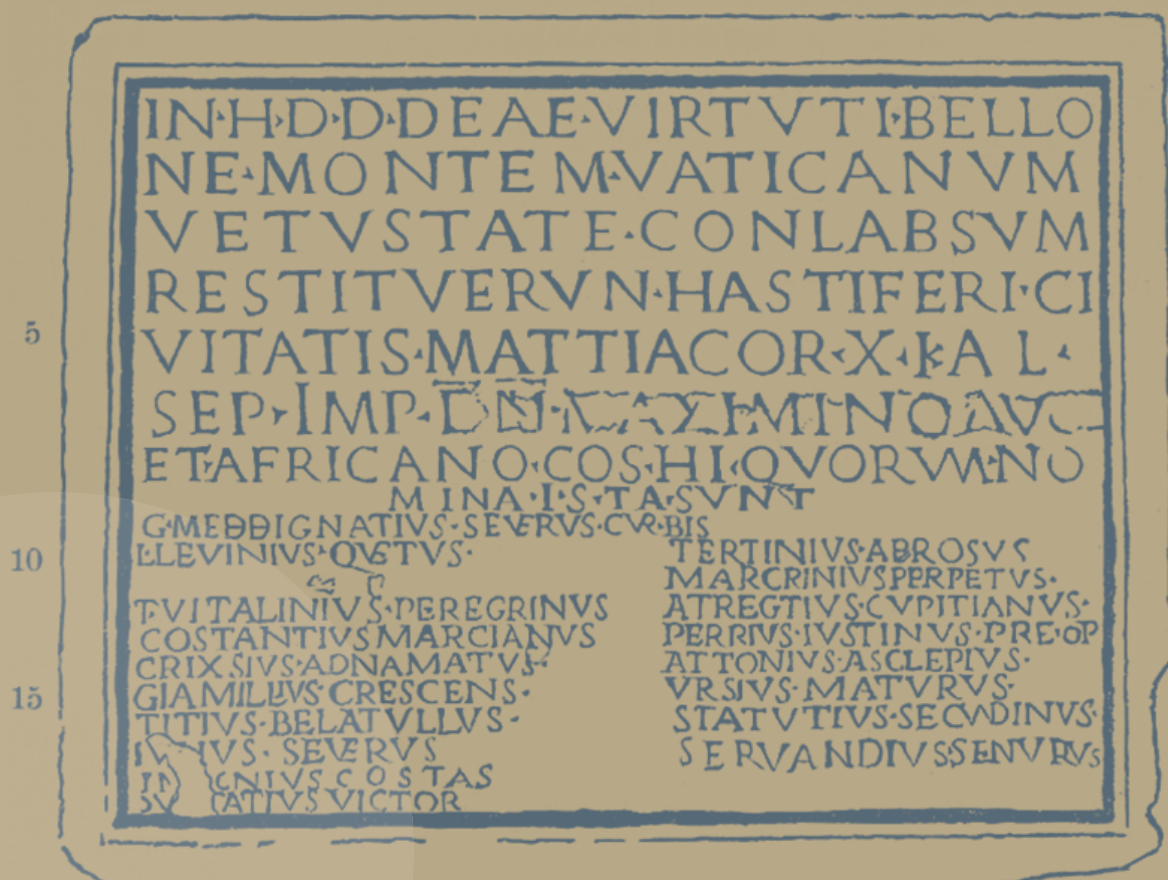 IN·H·D·D·DEAE·VIRTVTI·BELLO
NE·MONTEM·VATICANVM
VETVSTATE·CONLABSVM
RESTITVERVN·HASTIFERI·CI
5
VITATIS·MATTIACOR·X·KAL·
SEP·IMP·DN·MAXIMINO AVG
ET·AFRICANO·COS·HI·QVORVM·NO
MINA·I·S·TA·SVNT
G·MEĐĐIGNATIVS·SEVERVS·CVR·BIS
10
L·LEVINIVS·QVETVS·
T·VITALINIVS·PEREGRINVS
COSTANTIVS MARCIANVS
CRIXSIVS·ADNAMATVS·
15
GIAMILLIVS·CRESCENS·
TITIVS·BELATVLLVS·
SEVERVS
COSTAS
VICTOR
TERTINIVS·ABROSVS
MARCRINIVS PERPETVS·
ATREGTIVS·CVPITIANVS·
PERRIVS·IVSTINVS·PRE·OP
ATTONIVS·ASCLEPIVS·
VRSIVS·MATVRVS·
STATVTIVS·SECVDINVS·
SERVANDIVS·SENVRVS